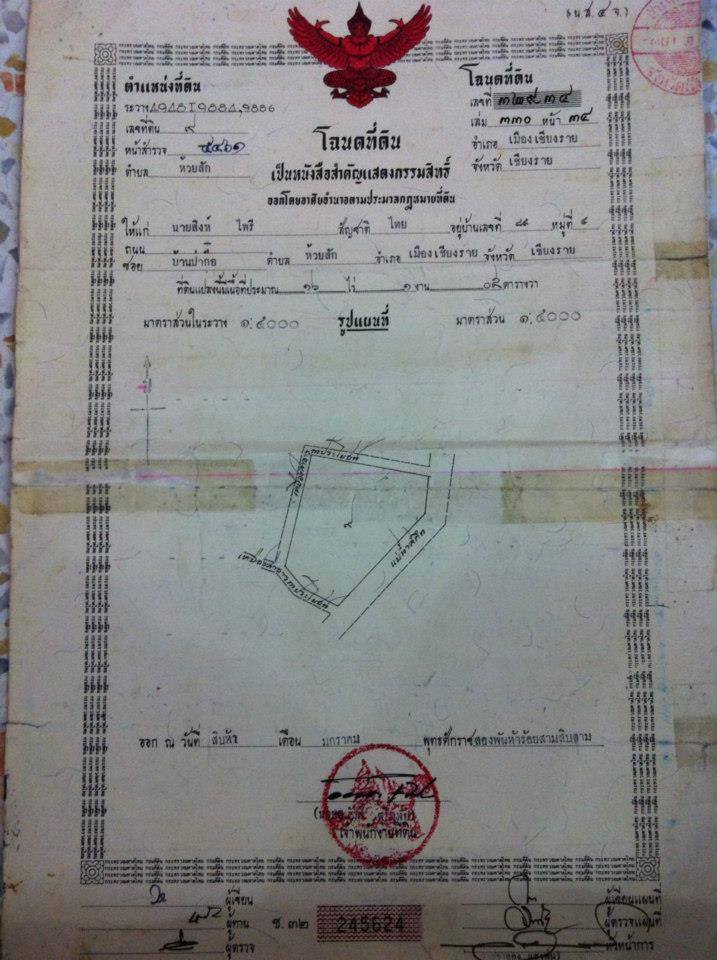 (น.ส.๔ จ.)
ตำแหน่งที่ดิน
ระวาง 4948 I 9884, 9886
เลขที่ดิน ๙
หน้าสำรวจ ๕๔๖๑
ตำบล ห้วยสัก
โฉนดที่ดิน
เลขที่ ๓๒๙๓๔
เล่ม ๓๓๐ หน้า ๓๔
อำเภอ เมืองเชียงราย
จังหวัด เชียงราย
โฉนดที่ดิน
เป็นหนังสือสำคัญแสดงกรรมสิทธิ์
ออกโดยอาศัยอำนาจตามประมวลกฎหมายที่ดิน
ให้แก่ นายสิงห์ ไพรี สัญชาติ ไทย อยู่บ้านเลขที่ ๘๙ หมู่ที่
ถนน
ซอย บ้านปากือ ตำบล ห้วยสัก อำเภอ เมืองเชียงราย จังหวัด เชียงราย
ที่ดินแปลงนี้มีเนื้อที่ประมาณ ๑๖ ไร่ ๑ งาน ตารางวา
มาตราส่วนในระวาง ๑:๔๐๐๐ รูปแผนที่ มาตราส่วน ๑:๔๐๐๐
น
ลำเหมืองสาธารณประโยชน์
ออก ณ วันที่ สิบห้า เดือน มกราคม พุทธศักราช สองพันห้าร้อยสามสิบสาม
เจ้าพนักงานที่ดิน
ผู้เขียน
ผู้ทาน
ผู้ตรวจ
ช. ๓๒
245624
ผู้เขียนแผนที่
ผู้ตรวจแผนที่
หัวหน้าการ